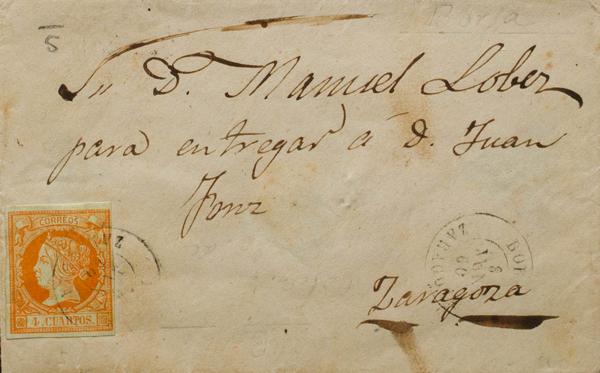 5
Borja
Sr. D. Manuel Lober
para entregar á d. Juan
Fonz
CORREOS
4 CUARTOS.
Zaragoza